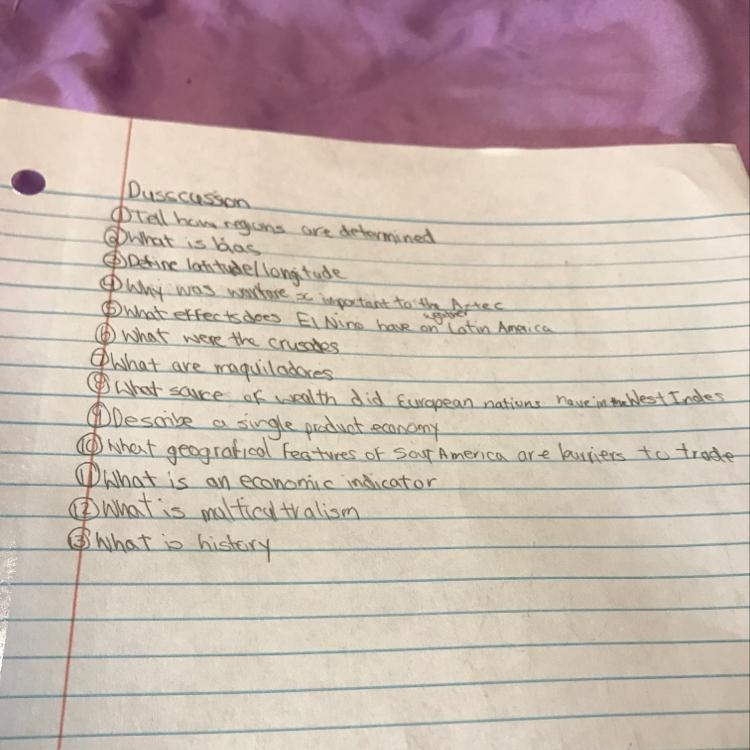 Dusccussion
① Tell how regions are determined
② What is bias
③ Define latitude/longitude
④ Why was warfare important to the Aztec
⑤ What effects does El Nino have on Latin America
⑥ What were the crusades
⑦ What are maquiladores
⑧ What source of wealth did European nations have in the West Indes
⑨ Describe a single product economy
⑩ What geografical features of Sout America are burriers to trade
⑪ What is an economic indicator
⑫ What is malticultralism
⑬ What is history